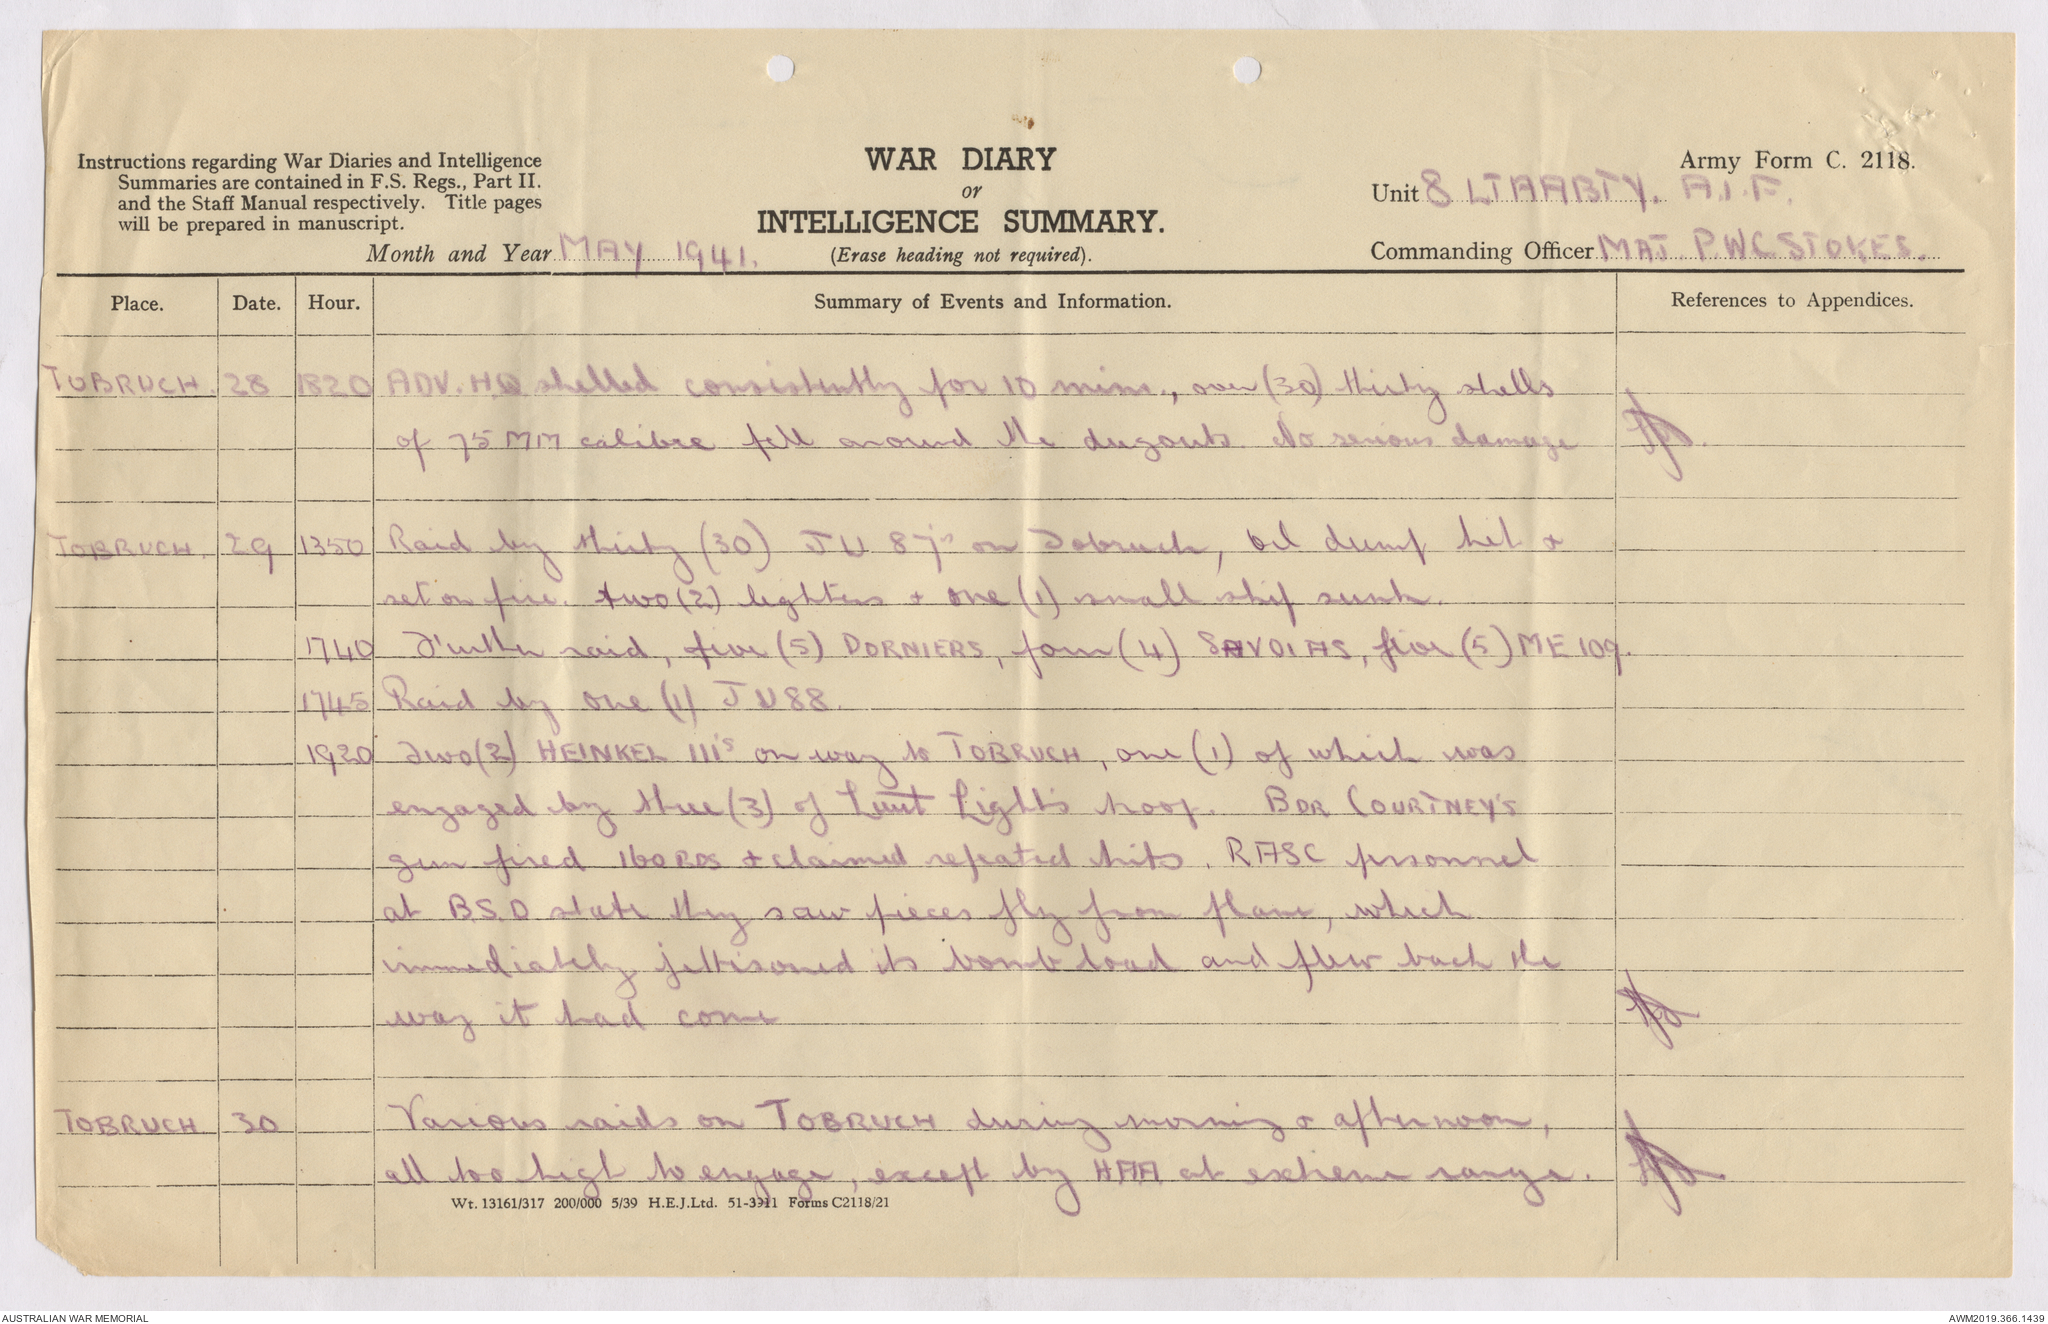 Instructions regarding War Diaries and Intelligence
Summaries are contained in F.S. Regs., Part II.
and the Staff Manual respectively. Title pages
will be prepared in manuscript.
Month and Year MAY 1941.
WAR DIARY
or
INTELLIGENCE SUMMARY.
(Erase heading not required).
Army Form C. 2118.
Unit 8 LTAABTY. A.I.F.
Commanding Officer MAJ. P.W.C STOKES.
Place. Date. Hour. Summary of Events and Information. References to Appendices.
TOBRUCH. 28 1820 ADV. HQ shelled consistently for 10 mins., over (30) thirty shells
of 75 MM calibre fell around the dugouts. No serious damage
TOBRUCH. 29 1350 Raid by thirty (30) JU 87's on Tobruch, oil dump hit &
set on fire. two (2) lighters & one (1) small ship sunk.
1740 Further raid, five (5) DORNIERS, four (4) SAVOIAS, five (5) ME 109.
1745 Raid by one (1) JU88.
1920 Two (2) HEINKEL 111's on way to TOBRUCH, one (1) of which was
engaged by three (3) of Lieut Light's troop. BDR COURTNEY'S
gun fired 160 RDS & claimed repeated hits. RASC personnel
at B.S.D state they saw pieces fly from plane, which
immediately jettisoned its bomb load and flew back the
way it had come
TOBRUCH 30 Various raids on TOBRUCH during morning & afternoon,
all too high to engage, except by HAA at extreme range.
Wt. 13161/317 200/000 5/39 H.E.J.Ltd. 51-3911 Forms C2118/21
AUSTRALIAN WAR MEMORIAL
AWM2019.366.1439